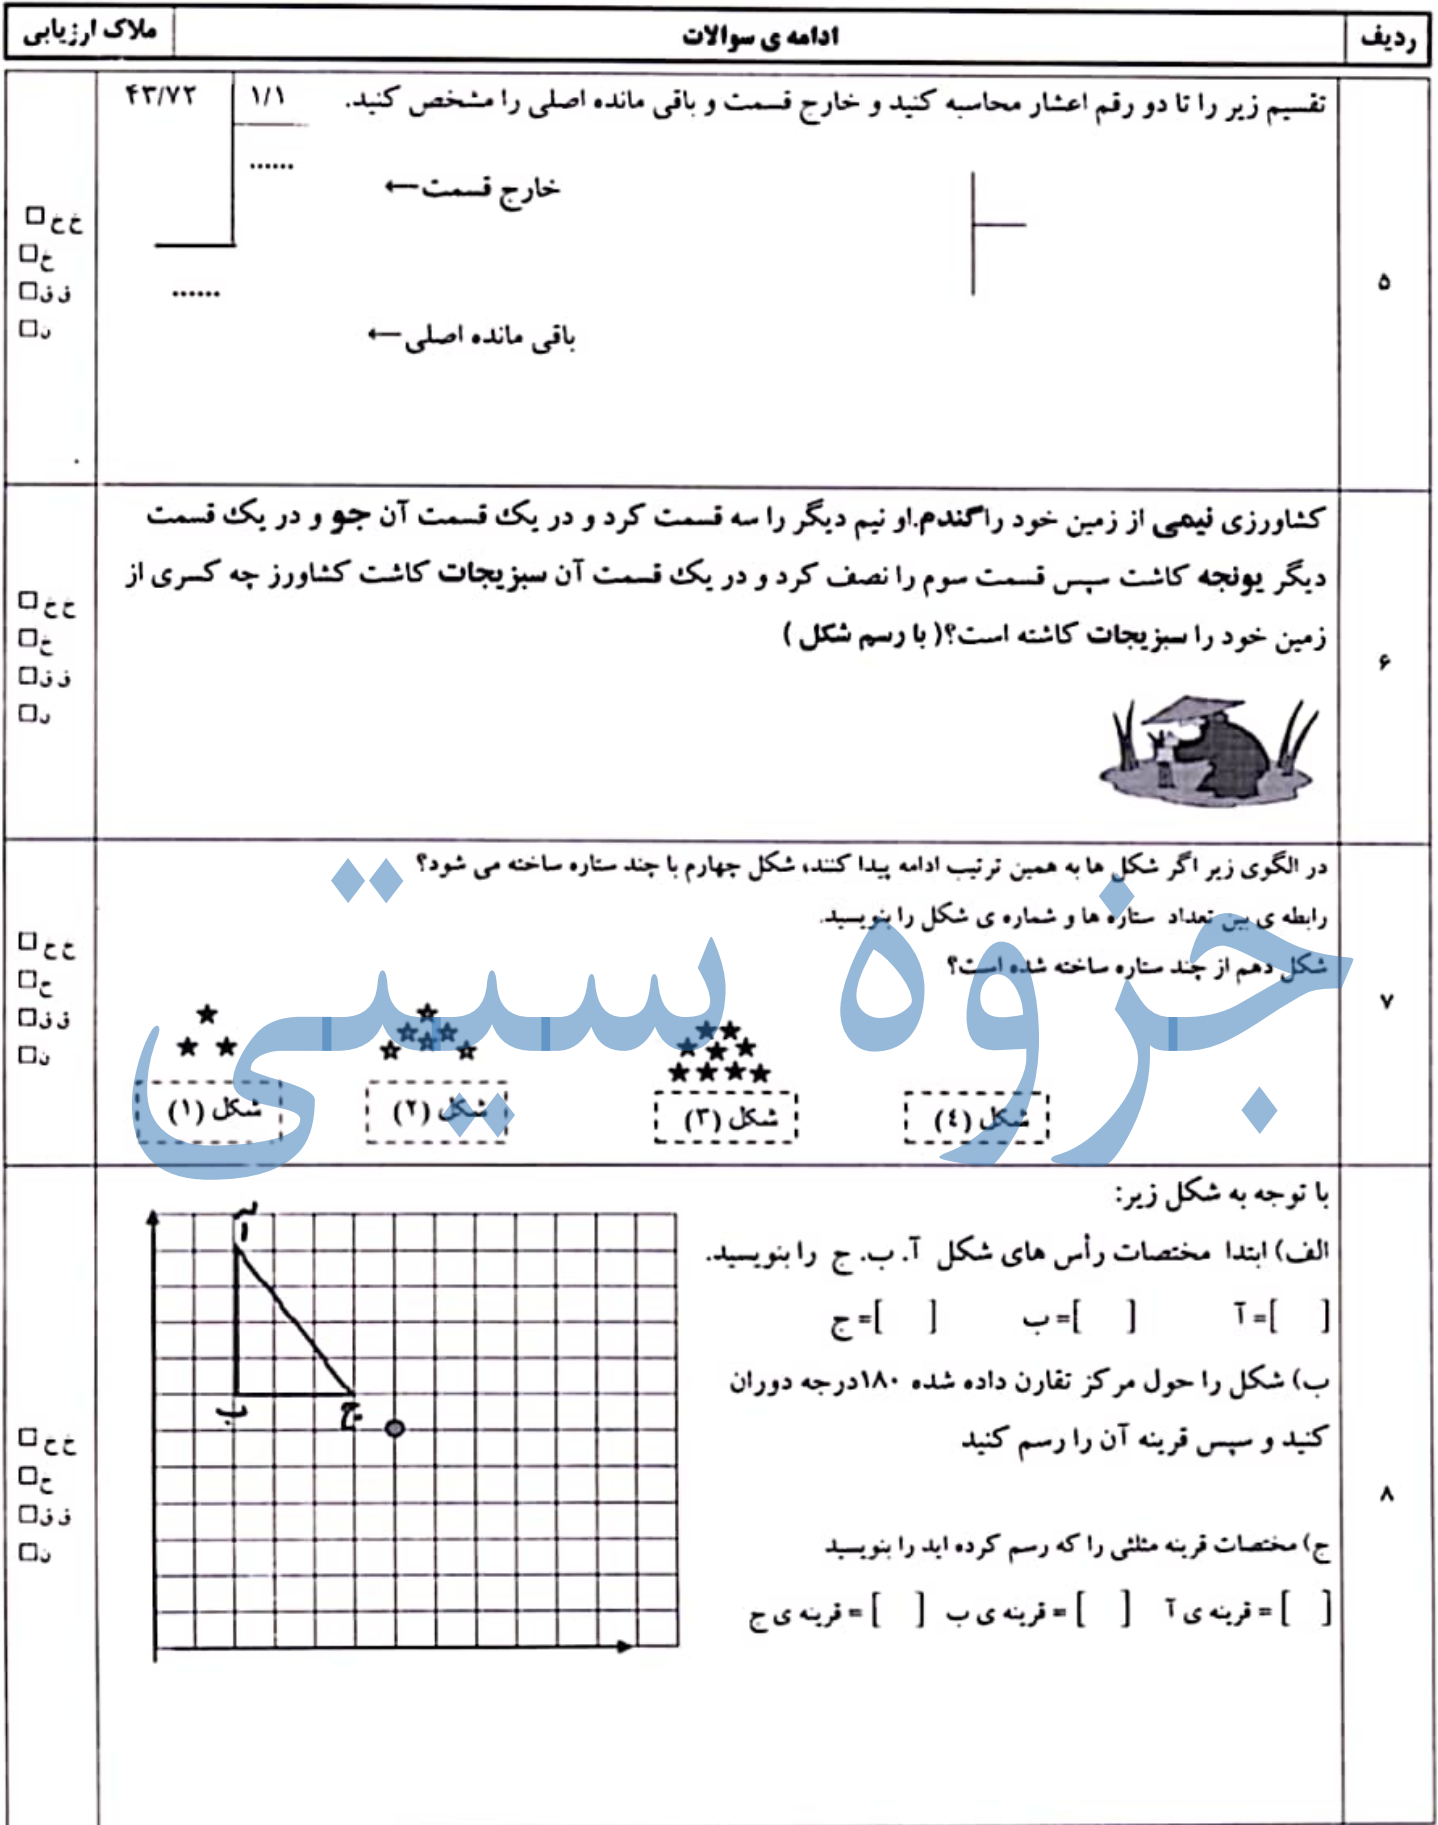 ردیف ادامه ی سوالات ملاک ارزیابی
تقسیم زیر را تا دو رقم اعشار محاسبه کنید و خارج قسمت و باقی مانده اصلی را مشخص کنید.
۴۳/۷۲ ۱/۱
......
خارج قسمت ←
......
باقی مانده اصلی ←
۵
خ خ □
خ □
ق ق □
ن □
کشاورزی نیمی از زمین خود را گندم.او نیم دیگر را سه قسمت کرد و در یک قسمت آن جو و در یک قسمت
دیگر یونجه کاشت سپس قسمت سوم را نصف کرد و در یک قسمت آن سبزیجات کاشت کشاورز چه کسری از
زمین خود را سبزیجات کاشته است؟( با رسم شکل )
۶
خ خ □
خ □
ق ق □
ن □
در الگوی زیر اگر شکل ها به همین ترتیب ادامه پیدا کنند، شکل چهارم با چند ستاره ساخته می شود؟
رابطه ی بین تعداد ستاره ها و شماره ی شکل را بنویسید.
شکل دهم از چند ستاره ساخته شده است؟
۷
خ خ □
خ □
ق ق □
ن □
شکل (۱) شکل (۲) شکل (۳) شکل (٤)
جزوه سیتی
با توجه به شکل زیر:
الف) ابتدا مختصات رأس های شکل آ. ب. ج را بنویسید.
آ=[ ] ب=[ ] ج=[ ]
ب) شکل را حول مرکز تقارن داده شده ۱۸۰درجه دوران
کنید و سپس قرینه آن را رسم کنید
ج) مختصات قرینه مثلثی را که رسم کرده اید را بنویسید
[ ] = قرینه ی آ [ ] = قرینه ی ب [ ] = قرینه ی ج
آ
ب
ج
۸
خ خ □
خ □
ق ق □
ن □